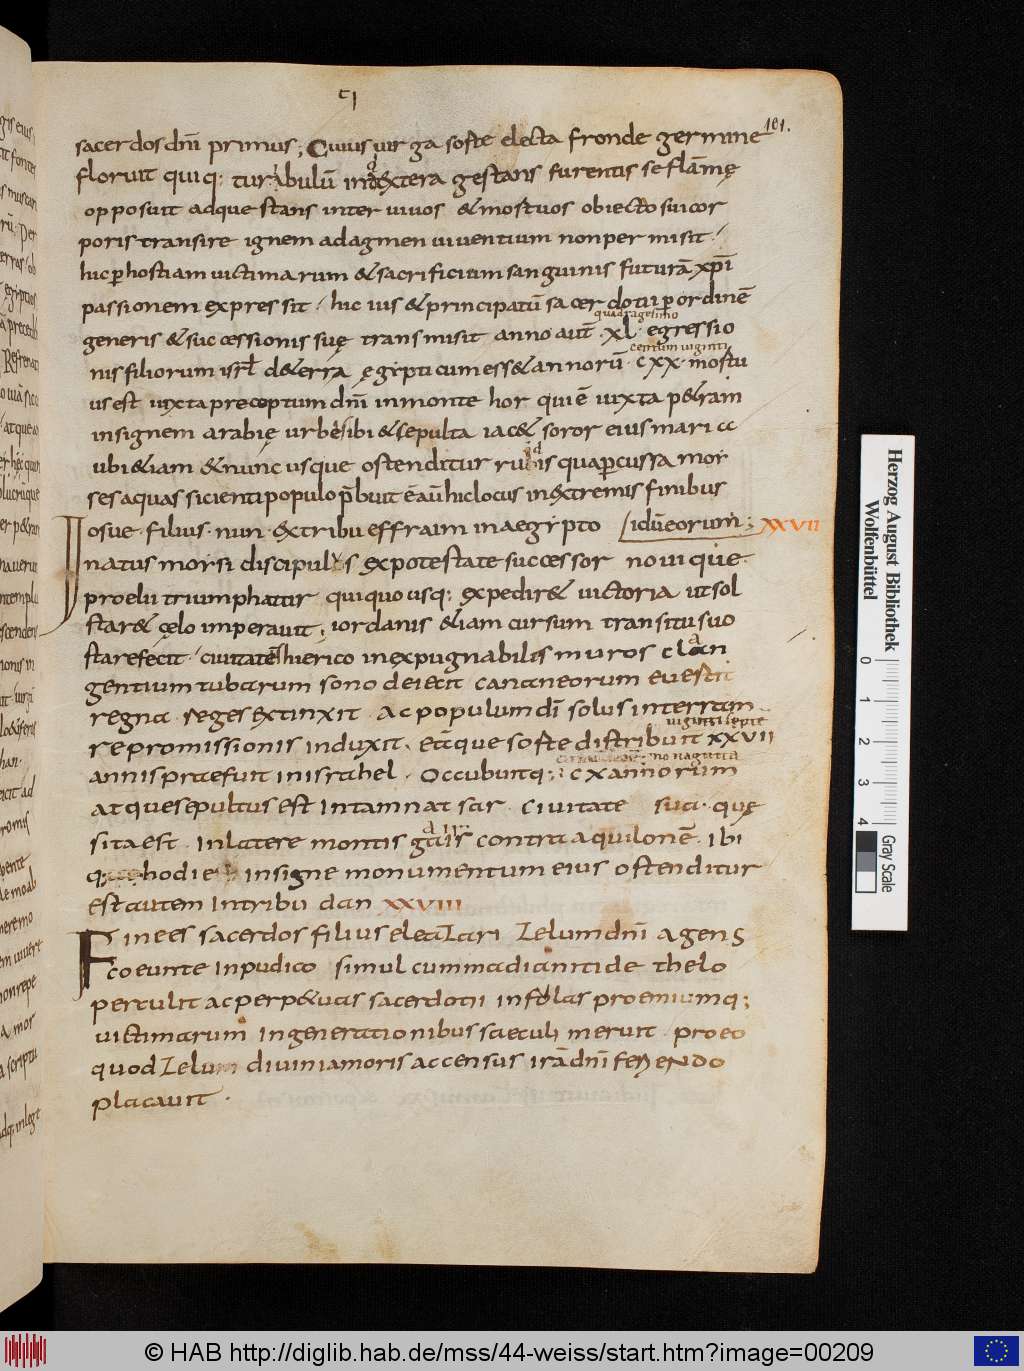 CI
101.
sacerdos dn̄i primus; Cuius uirga sorte electa fronde germine
floruit quiq: turibulū in dextera gestans furentis se flāmę
opposuit adque stans inter uiuos & mortuos obiecto sui cor
poris transire ignem ad agmen uiuentium non permisit.
hic ꝑ hostiam uictimarum & sacrificium sanguinis futurā xp̄i
passionem expressit. hic ius & principatū sacerdotii ꝑ ordinē
quadragesimo
generis & successionis suę transmisit anno aut̄ ·xl· egressio
centum uiginti
nis filiorum isrl̄ de terra ęgipti cum ess& annorū ·cxx· mortu
us est iuxta preceptum dn̄i in monte hor qui ē iuxta p&ram
insignem arabię urbē sibi & sepulta iac& soror eius maria
ubi &iam & nunc usque ostenditur rupis qua ꝑcussa moi
ses aquas sicienti populo p̄buit ē aūt hic locus in extremis finibus
idūeorum; XXVII
Josue · filius · nun · ex tribu effraim in aegipto
natus moisi discipulus ex potestate successor nouique
proelii triumphatur qui quousq: expedir& uictoria ut sol
star& cęlo imperauit; iordanis &iam cursum transitu suo
stare fecit. ciuitatēs hierico inexpugnabilis muros clan
gentium tubarum sono deiecit cananeorum euertit
regna reges extinxit. Ac populum dī solus in terram
uiginti septe
repromissionis induxit. Eāque sorte distribuit xxvii
annis praefuit in israhel. Occubuitq; cx annorum
atque sepultus est In tamnatsar. ciuitate sua. quę
sita est. In latere montis gais contra aquilonē. Ibi
q; hodie insigne monumentum eius ostenditur
est autem In tribu dan XXVIII
Finees sacerdos filius eleazari zelum dn̄i agens
coeunte Inpudico simul cum madianitide thelo
pertulit ac perp&uas sacerdotii infolas proemiumq;
uictimarum In generationibus saeculi meruit. pro eo
quod zelum diuini amoris accensus irā dn̄i feriendo
placauit.
Herzog August Bibliothek
Wolfenbüttel
0 1 2 3 4
Gray Scale
© HAB http://diglib.hab.de/mss/44-weiss/start.htm?image=00209